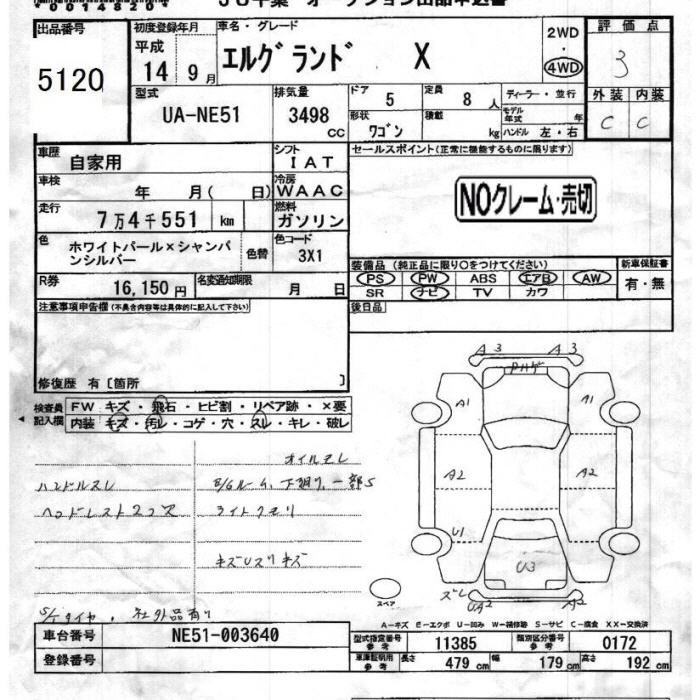 *0014820*
出品番号
5120
初度登録年月
平成
14 9月
車名・グレード
エルグランド X
2WD
・
4WD
評価点
3
外装 内装
C C
型式
UA-NE51
排気量
3498
CC
ドア
5
定員
8人
ディーラー・並行
モデル年式 年
形状
ワゴン
積載
kg
ハンドル 左・右
車歴
自家用
シフト
IAT
セールスポイント(正常に機能するものに限ります)
車検
年 月( 日)
冷房
WAAC
NOクレーム・売切
走行
7万4千551 km
燃料
ガソリン
色
ホワイトパール×シャンパンシルバー
色替
色コード
3X1
R券
16,150円
名変通知期限
月 日
装備品(純正品に限り○をつけてください)
PS PW ABS エアB AW
SR ナビ TV カワ
新車保証書
有・無
後日品
注意事項申告欄(不具合内容等は具体的に記入して下さい)
修復歴 有[箇所 ]
検査員記入欄
FW キズ・飛石・ヒビ割・リペア跡・×要
内装・キズ・汚レ・コゲ・穴・スレ・キレ・破レ
オイルモレ
ハンドルスレ
ヘッドレスト2コ欠
ライトクモリ
S/Tタイヤ・社外品有り
A3 A3
A1 A1
A2 A2
U1
U3
ズレ
UA2 A2
スペア
A-キズ E-エクボ U-凹み W-補修跡 S-サビ C-腐食 XX-交換済
車台番号
NE51-003640
登録番号
型式指定番号
参考
11385
類別区分番号
参考
0172
車庫証明用
参考
長さ 479cm 幅 179cm 高さ 192cm